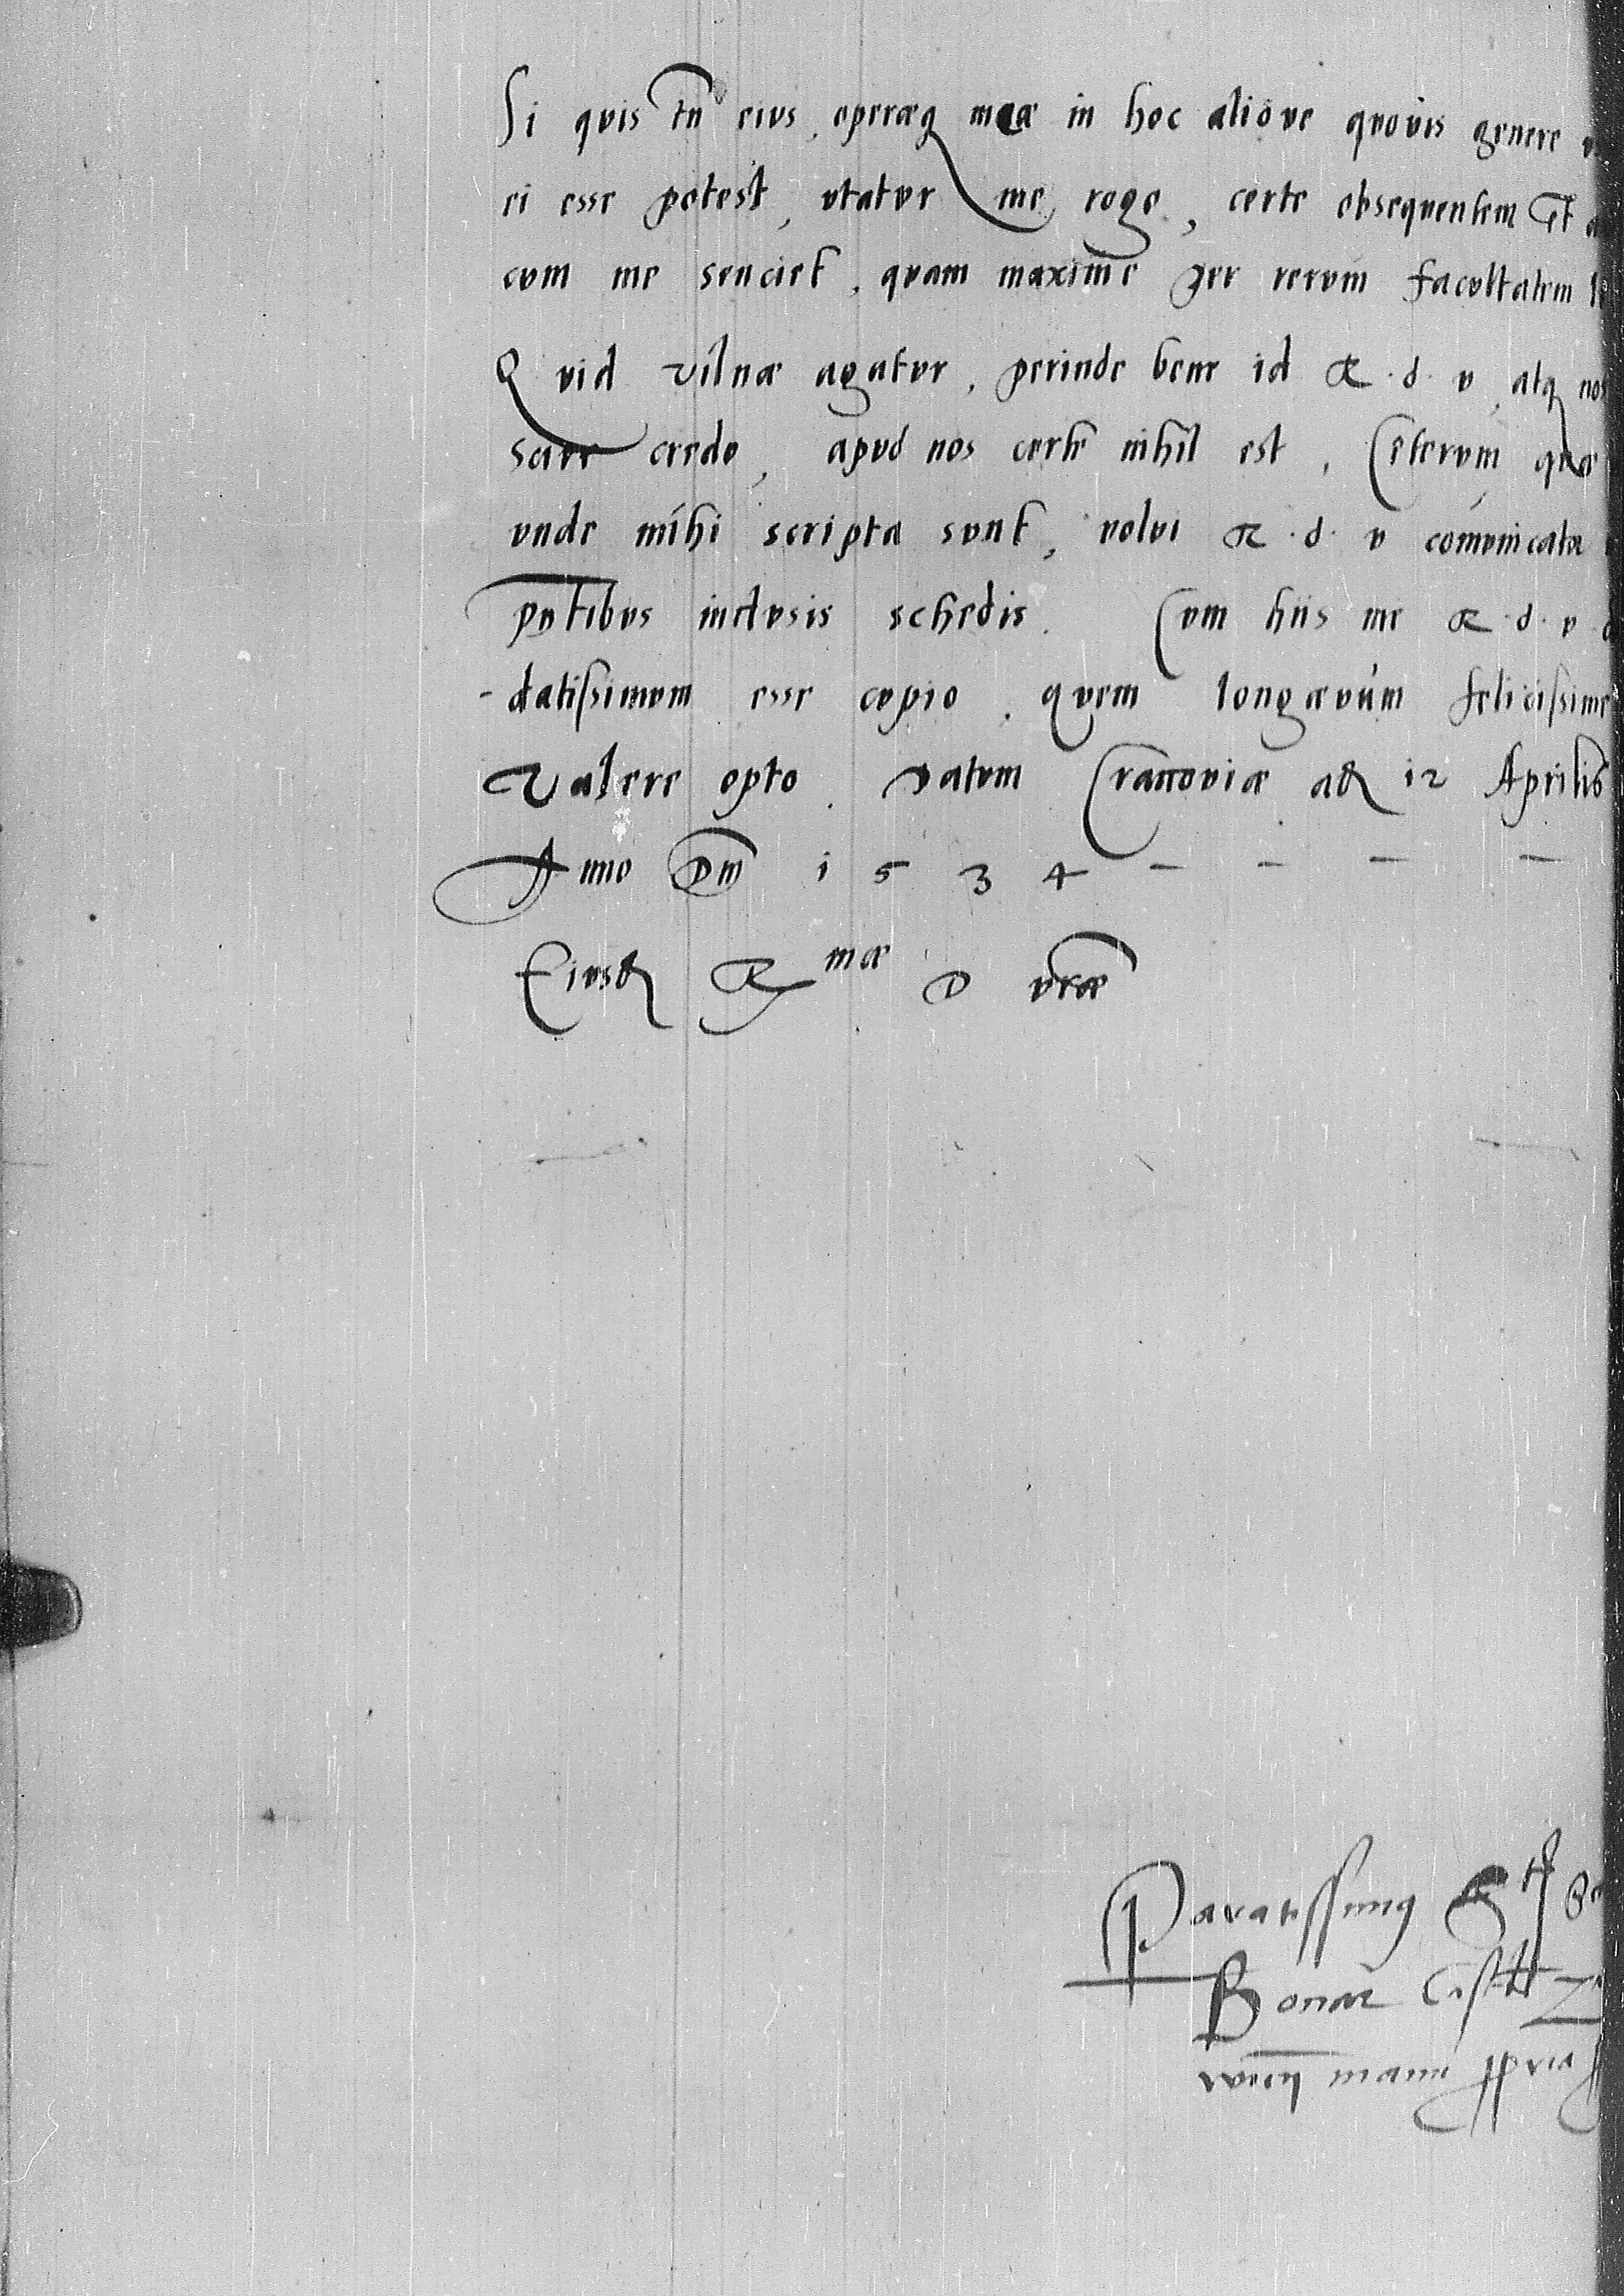 Si quis tn̄ eius, operæq meæ in hoc alioue quouis genere
ei esse potest, vtatur me rogo, certe obsequentem et
cum me senciet, quam maxime per rerum facultatem
Quid Vilnæ agatur, perinde bene id R. d. v, atq nos
scire credo, apud nos certe nihil est, Cęterum quæ
vnde mihi scripta sunt, volui R. d. v com̄unicata
pn̄tibus inclusis schedis. Cum hiis me R. d. v
-datissimum esse cupio, quem longæuum felicissime
Valere opto. Datum Craccoviæ aď 12 Aprilis
Anno Dn̄i 1534 - - - -
Eiusď R mæ D vr̄æ
Paratissimus
Bonar Castell
manu ppria